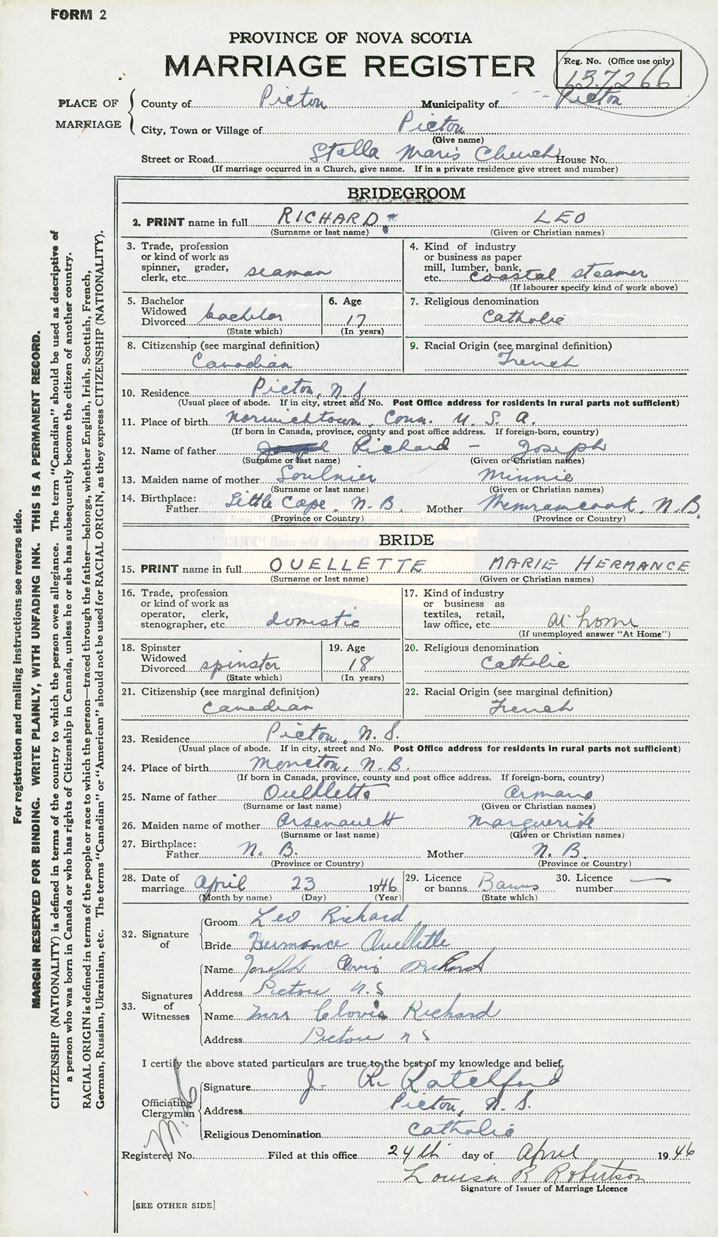 FORM 2
PROVINCE OF NOVA SCOTIA
MARRIAGE REGISTER
Reg. No. (Office use only)
137266
PLACE OF MARRIAGE
County of Pictou Municipality of Pictou
City, Town or Village of Pictou
(Give name)
Street or Road Stella Maris Church House No.
(If marriage occurred in a Church, give name. If in a private residence give street and number)
BRIDEGROOM
2. PRINT name in full RICHARD LEO
(Surname or last name) (Given or Christian names)
3. Trade, profession or kind of work as spinner, grader, clerk, etc. seaman
4. Kind of industry or business as paper mill, lumber, bank, etc. coastal steamer
(If labourer specify kind of work above)
5. Bachelor Widowed Divorced bachelor
(State which)
6. Age 17
(In years)
7. Religious denomination
Catholic
8. Citizenship (see marginal definition)
Canadian
9. Racial Origin (see marginal definition)
French
10. Residence Pictou, N.S.
(Usual place of abode. If in city, street and No. Post Office address for residents in rural parts not sufficient)
11. Place of birth Norwichtown, Conn. U.S.A.
(If born in Canada, province, county and post office address. If foreign-born, country)
12. Name of father Richard - Joseph
(Surname or last name) (Given or Christian names)
13. Maiden name of mother Soulnier Minnie
(Surname or last name) (Given or Christian names)
14. Birthplace: Father Little Cape, N.B. Mother Memramcook, N.B.
(Province or Country) (Province or Country)
BRIDE
15. PRINT name in full OUELLETTE MARIE HERMANCE
(Surname or last name) (Given or Christian names)
16. Trade, profession or kind of work as operator, clerk, stenographer, etc. domestic
17. Kind of industry or business as textiles, retail, law office, etc. At home
(If unemployed answer "At Home")
18. Spinster Widowed Divorced spinster
(State which)
19. Age 18
(In years)
20. Religious denomination
Catholic
21. Citizenship (see marginal definition)
Canadian
22. Racial Origin (see marginal definition)
French
23. Residence Pictou, N.S.
(Usual place of abode. If in city, street and No. Post Office address for residents in rural parts not sufficient)
24. Place of birth Moncton, N.B.
(If born in Canada, province, county and post office address. If foreign-born, country)
25. Name of father Ouellette Armand
(Surname or last name) (Given or Christian names)
26. Maiden name of mother Arsenault Margueride
(Surname or last name) (Given or Christian names)
27. Birthplace: Father N.B. Mother N.B.
(Province or Country) (Province or Country)
28. Date of marriage April 23 1946
(Month by name) (Day) (Year)
29. Licence or banns Banns
(State which)
30. Licence number —
32. Signature of
Groom Leo Richard
Bride Hermance Ouellette
33. Signatures of Witnesses
Name Joseph Clovis Richard
Address Pictou N.S
Name Mrs Clovis Richard
Address Pictou N S
I certify the above stated particulars are true to the best of my knowledge and belief.
Officiating Clergyman
Signature J. R. Ratchford
Address Pictou, N.S.
Religious Denomination Catholic
Registered No. Filed at this office 24th day of April 1946
Louisa R Robertson
Signature of Issuer of Marriage Licence
[SEE OTHER SIDE]
For registration and mailing instructions see reverse side.
MARGIN RESERVED FOR BINDING. WRITE PLAINLY, WITH UNFADING INK. THIS IS A PERMANENT RECORD.
CITIZENSHIP (NATIONALITY) is defined in terms of the country to which the person owes allegiance. The term "Canadian" should be used as descriptive of
a person who was born in Canada or who has rights of Citizenship in Canada, unless he or she has subsequently become the citizen of another country.
RACIAL ORIGIN is defined in terms of the people or race to which the person—traced through the father—belongs, whether English, Irish, Scottish, French,
German, Russian, Ukrainian, etc. The terms "Canadian" or "American" should not be used for RACIAL ORIGIN, as they express CITIZENSHIP (NATIONALITY).